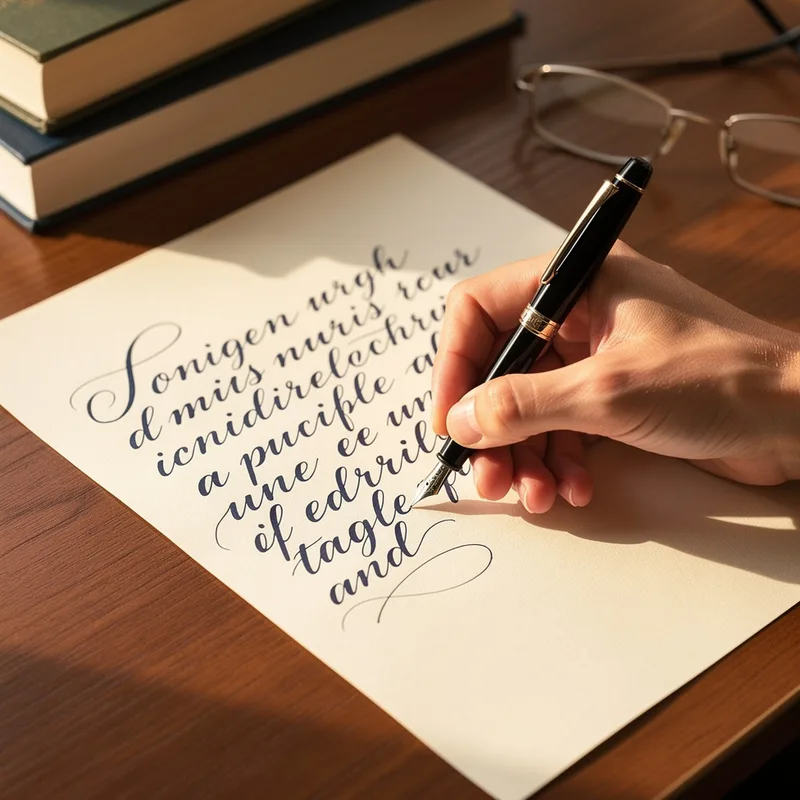 Sonigen urgh
d miis nuris rcur
icnidirelochrui
a pucifle al
une ee un
if edrril
tagle
and